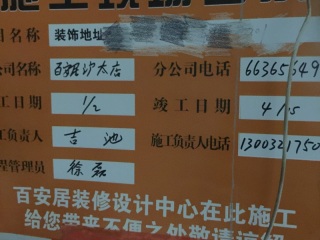 目名称 装饰地址
公司名称 百安沙太店 分公司电话 66365649
工日期 1/2 竣工日期 4/15
工负责人 吉池 施工负责人电话 1300321750
程管理员 徐磊
百安居装修设计中心在此施工
给您带来不便之处敬请谅解